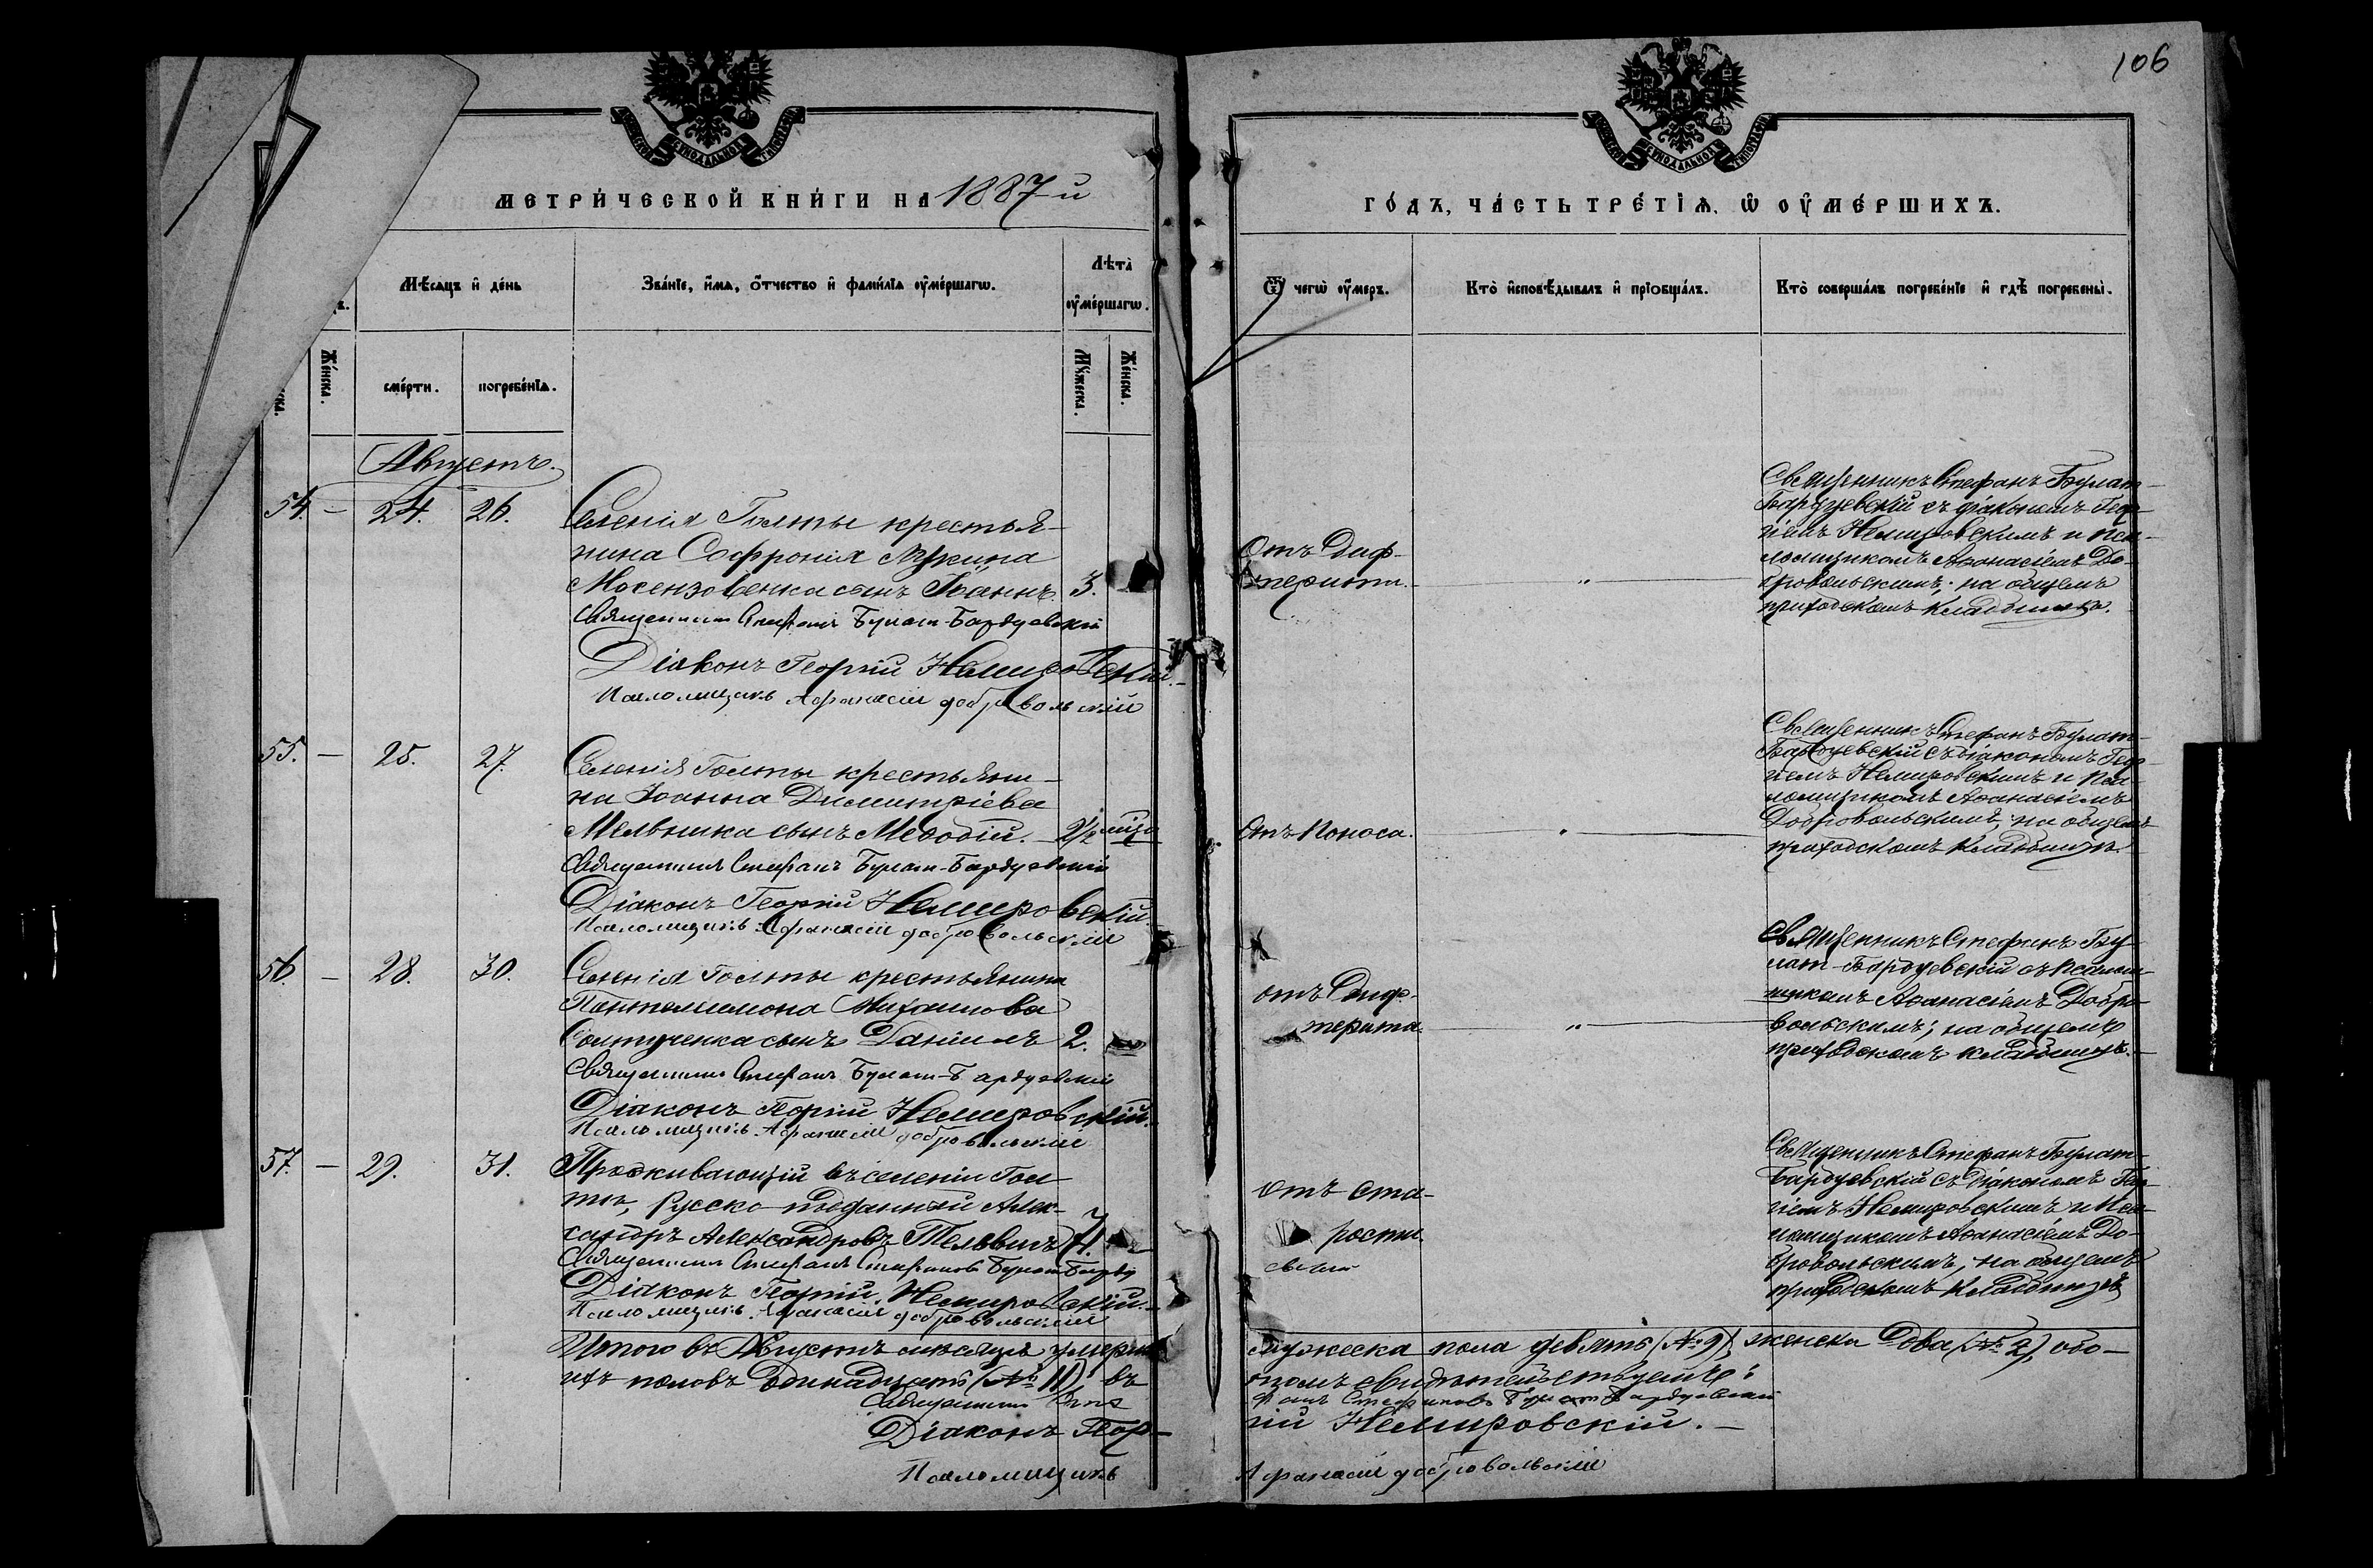 106
МЕТРИ́ЧЕСКОЙ КНИ́ГИ НА 1887-й
ГО́ДЪ, ЧА́СТЬ ТРЕ́ТІѦ, Ѡ ОУ҆МЕ́РШИХЪ.
Мѣ́сяцъ и҆ де́нь
Зва́нїе, и҆́мѧ, о҆́тчество и҆ фами́лїѧ оу҆ме́ршагѡ.
Лѣта̀ оу҆ме́ршагѡ.
Ѿ чегѡ̀ оу҆́меръ.
Кто̀ и҆сповѣ́дывалъ и҆ прїобща́лъ.
Кто̀ соверша́лъ погребе́нїе и҆ гдѣ̀ погребены̀.
Же́нска.
сме́рти.
погребе́нїѧ.
Мꙋ́жеска.
Же́нска.
Августъ.
54. — 24. 26.
Селенія Голты крестья-
нина Софронія
Мосензовенка сынъ Іоаннъ. 3.
Священникъ Стефанъ Булат-Бардуевскій
Діаконъ Георгій Немировскій.
Псаломщикъ Афанасій добровольскій
Отъ Диф-
терита. — " —
Священникъ Стефанъ Булат-
Бардуевскій съ діакономъ Геор-
гіемъ Немировскимъ и Пса-
ломщикомъ Аѳанасіемъ До-
бровольскимъ; на общемъ
приходскомъ кладбищѣ.
55. — 25. 27.
Селенія Голты крестьяни-
на Іоанна Димитріева
Мельника сынъ Меѳодій. 2½ мѣс.
Священникъ Стефанъ Булат-Бардуевскій
Діаконъ Георгій Немировскій
Псаломщикъ Афанасій добровольскій
Отъ Поноса. — " —
Священникъ Стефанъ Булат-
Бардуевскій съ діакономъ Геор-
гіемъ Немировскимъ и Пса-
ломщикомъ Аѳанасіемъ
Добровольскимъ; на общемъ
приходскомъ кладбищѣ.
56. — 28. 30.
Селенія Голты крестьянина
Пантелеимона Михаилова
сынъ Даніилъ 2.
Священникъ Стефанъ Булат-Бардуевскій
Діаконъ Георгій Немировскій.
Псаломщикъ Афанасій добровольскій
отъ Диф-
терита. — " —
Священникъ Стефанъ Бу-
лат-Бардуевскій съ Псалом-
щикомъ Аѳанасіемъ Добро-
вольскимъ; на общемъ
приходскомъ кладбищѣ.
57. — 29. 31.
Проживающій въ селеніи Гол-
тѣ, Русско-подданный Алек-
сандръ Александровъ
Священникъ Стефанъ Стефановъ Булат-Барду
Діаконъ Георгій Немировскій.
Псаломщикъ Афанасій добровольскій
отъ ста-
рости.
Священникъ Стефанъ Булат-
Бардуевскій съ діакономъ Геор-
гіемъ Немировскимъ и Пса-
ломщикомъ Аѳанасіемъ До-
бровольскимъ, на общемъ
приходскомъ кладбищѣ
Итого въ Августѣ мѣсяцѣ умерло мужеска пола девять (№ 9), женска два (№ 2), обо-
ихъ половъ одинадцать (№ 11); въ
чомъ свидѣтельствуемъ:
Священникъ Стефанъ Стефановъ Булат-Бардуевскій
Діаконъ Георгій Немировскій. —
Псаломщикъ Афанасій добровольскій